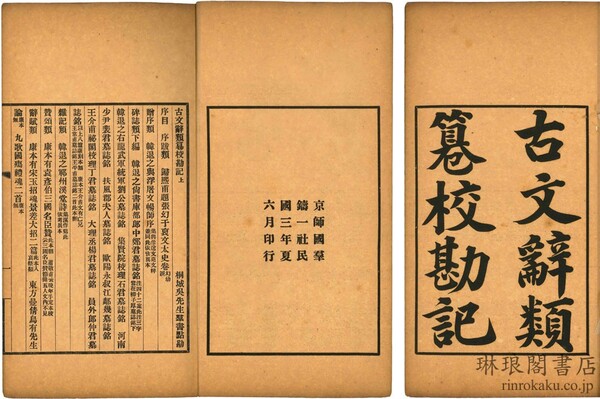 古文辭類
篹校勘記
京師國羣
鑄一社民
國三年夏
六月印行
古文辭類篹校勘記上
桐城吳先生羣書點勘
序目 序跋類 歸熙甫題張幼于裒文太史卷
贈序類 韓退之與浮屠文暢師序
碑誌類下編 韓退之尚書庫部郎中鄭君墓誌銘
韓退之右龍武軍統軍劉公墓誌銘 集賢院校理石君墓誌銘 河南
少尹裴君墓誌銘 扶風郡夫人墓誌銘 歐陽永叔江鄰幾墓誌銘
王介甫祕閣校理丁君墓誌銘 大理丞楊君墓誌銘 員外郎仲君墓
誌銘
雜記類 韓退之鄆州溪堂詩
贊頌類 康本有袁彥伯三國名臣贊
辭賦類 康本有宋玉招魂景差大招二篇 東方曼倩烏有先生
論 九歌國殤禮魂二首
琳琅閣書店
rinrokaku.co.jp